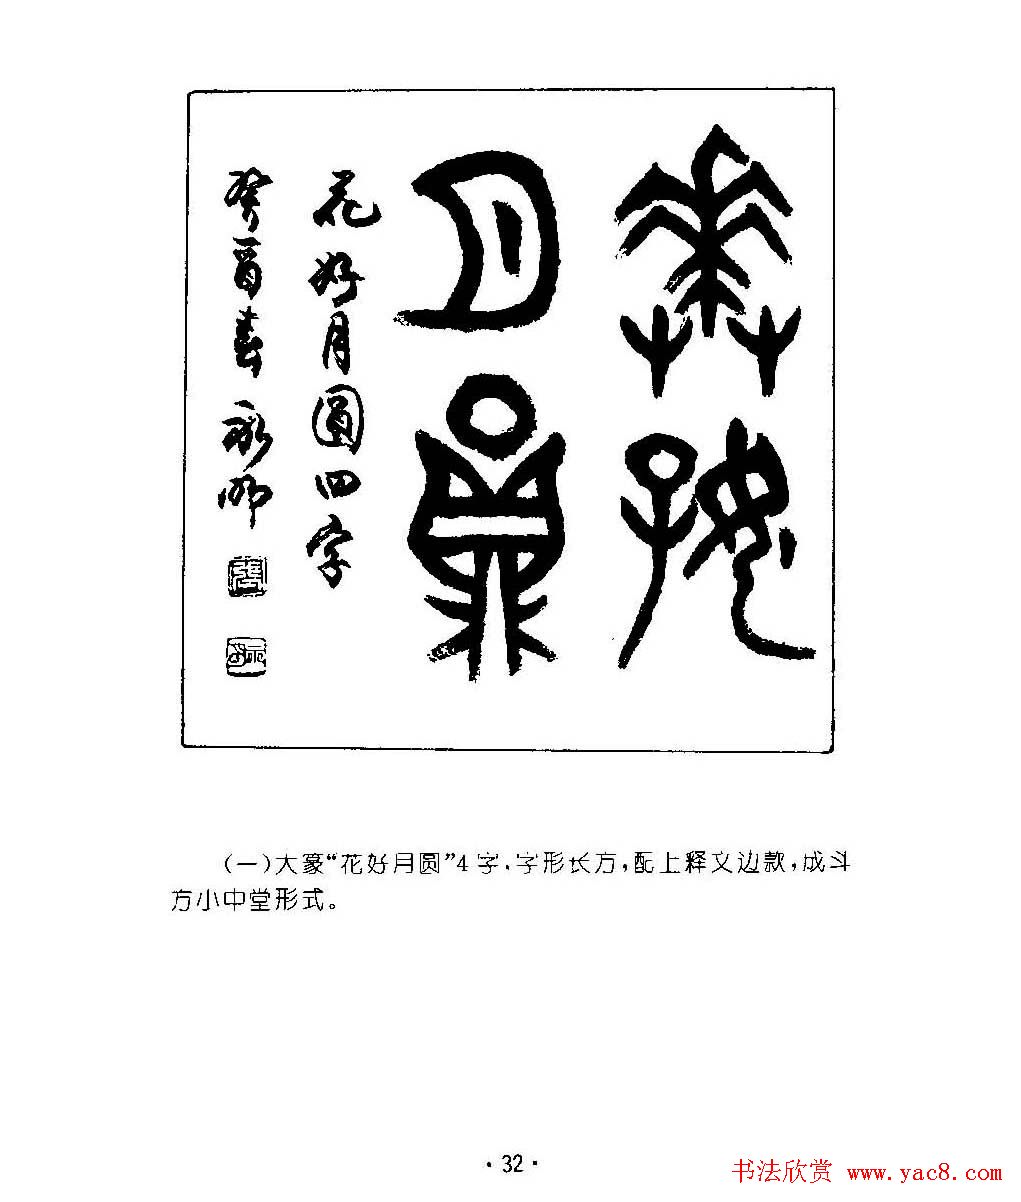 花好
月圆
花好月圓四字
癸酉春永明
(一)大篆“花好月圆”4字,字形长方,配上释文边款,成斗
方小中堂形式。
·32·
书法欣赏 www.yac8.com